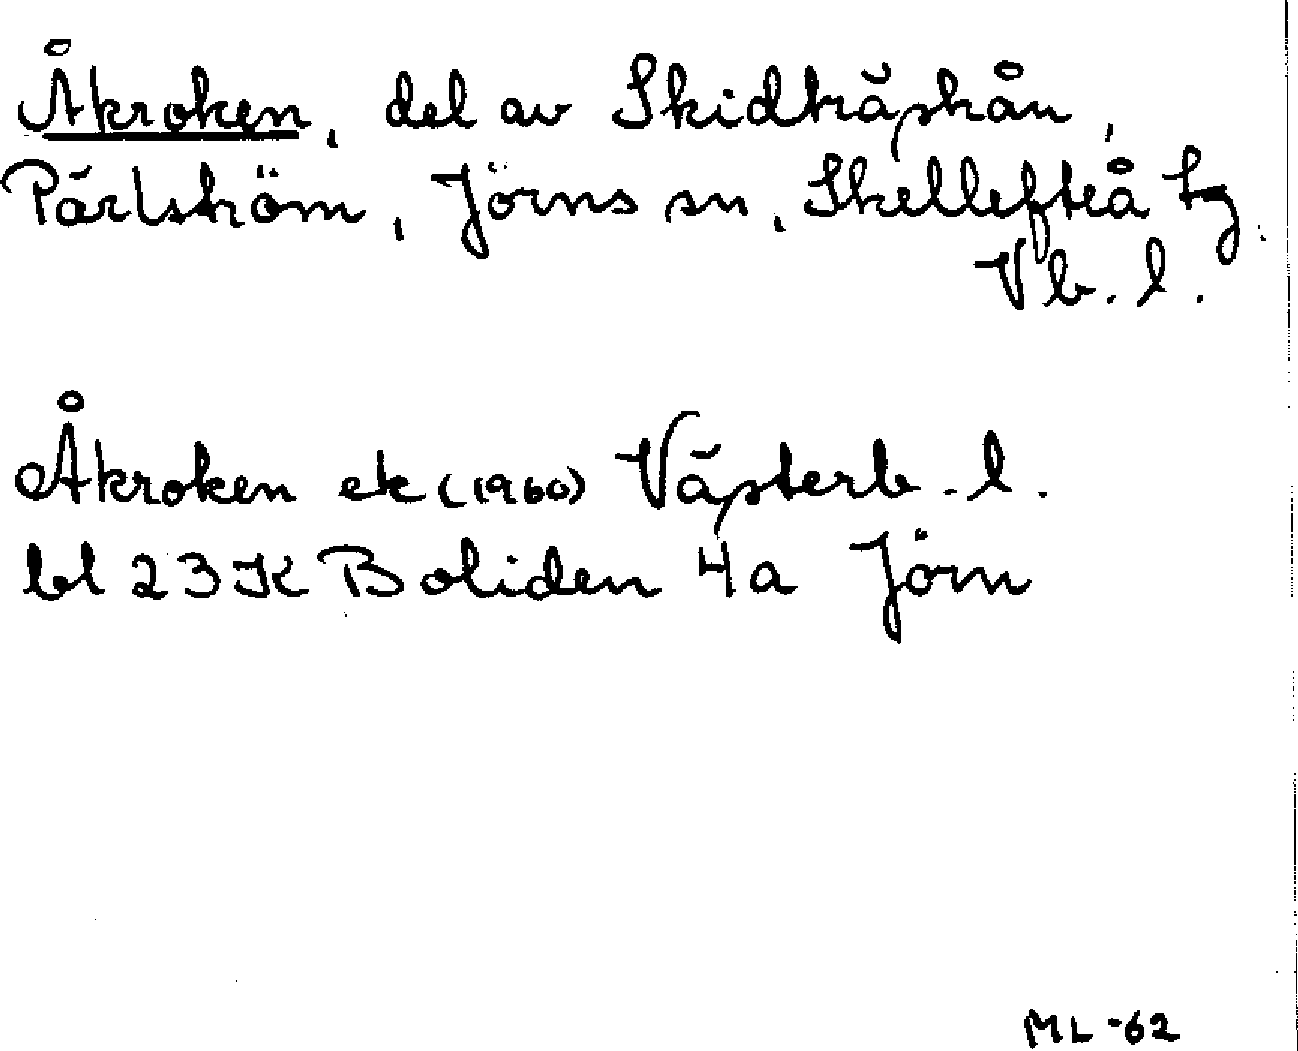 Åkroken, del av Skidträskån,
Pärlström, Jörns sn, Skellefteå tg.
Vb. l.
Åkroken ek (1960) Västerb. l.
bl 23 K Boliden 4a Jörn
ML -62